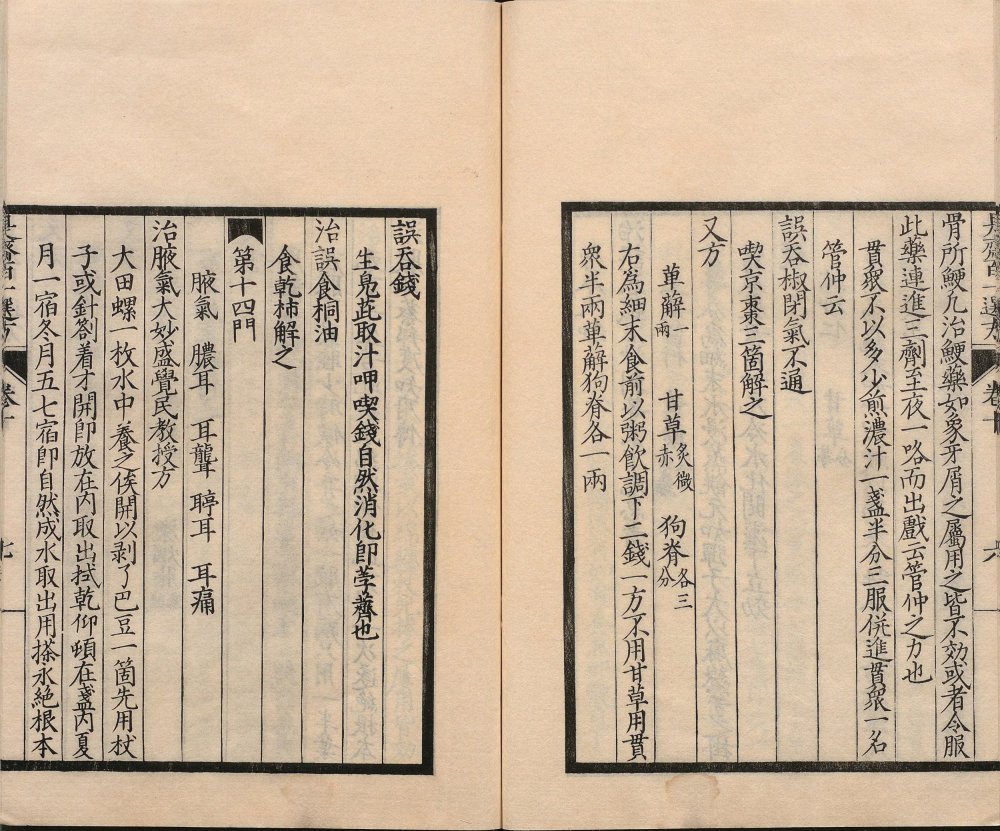 骨所鯁凡治鯁藥如象牙屑之屬用之皆不効或者令服
此藥連進三劑至夜一咯而出戲云管仲之力也
貫衆不以多少煎濃汁一盞半分三服併進貫衆一名
管仲云
誤吞椒閉氣不通
喫京棗三箇解之
又方
萆薢一兩 甘草炙微赤 狗脊各三分
右為細末食前以粥飲調下二錢一方不用甘草用貫
衆半兩萆薢狗脊各一兩
誤吞錢
生鳧茈取汁呷喫錢自然消化即荸薺也
治誤食桐油
食乾柿解之
第十四門
腋氣 膿耳 耳聾 聤耳 耳痛
治腋氣大妙盛覺民教授方
大田螺一枚水中養之俟開以剥了巴豆一箇先用杖
子或針劄着才開即放在内取出拭乾仰頓在盞内夏
月一宿冬月五七宿即自然成水取出用搽永絶根本